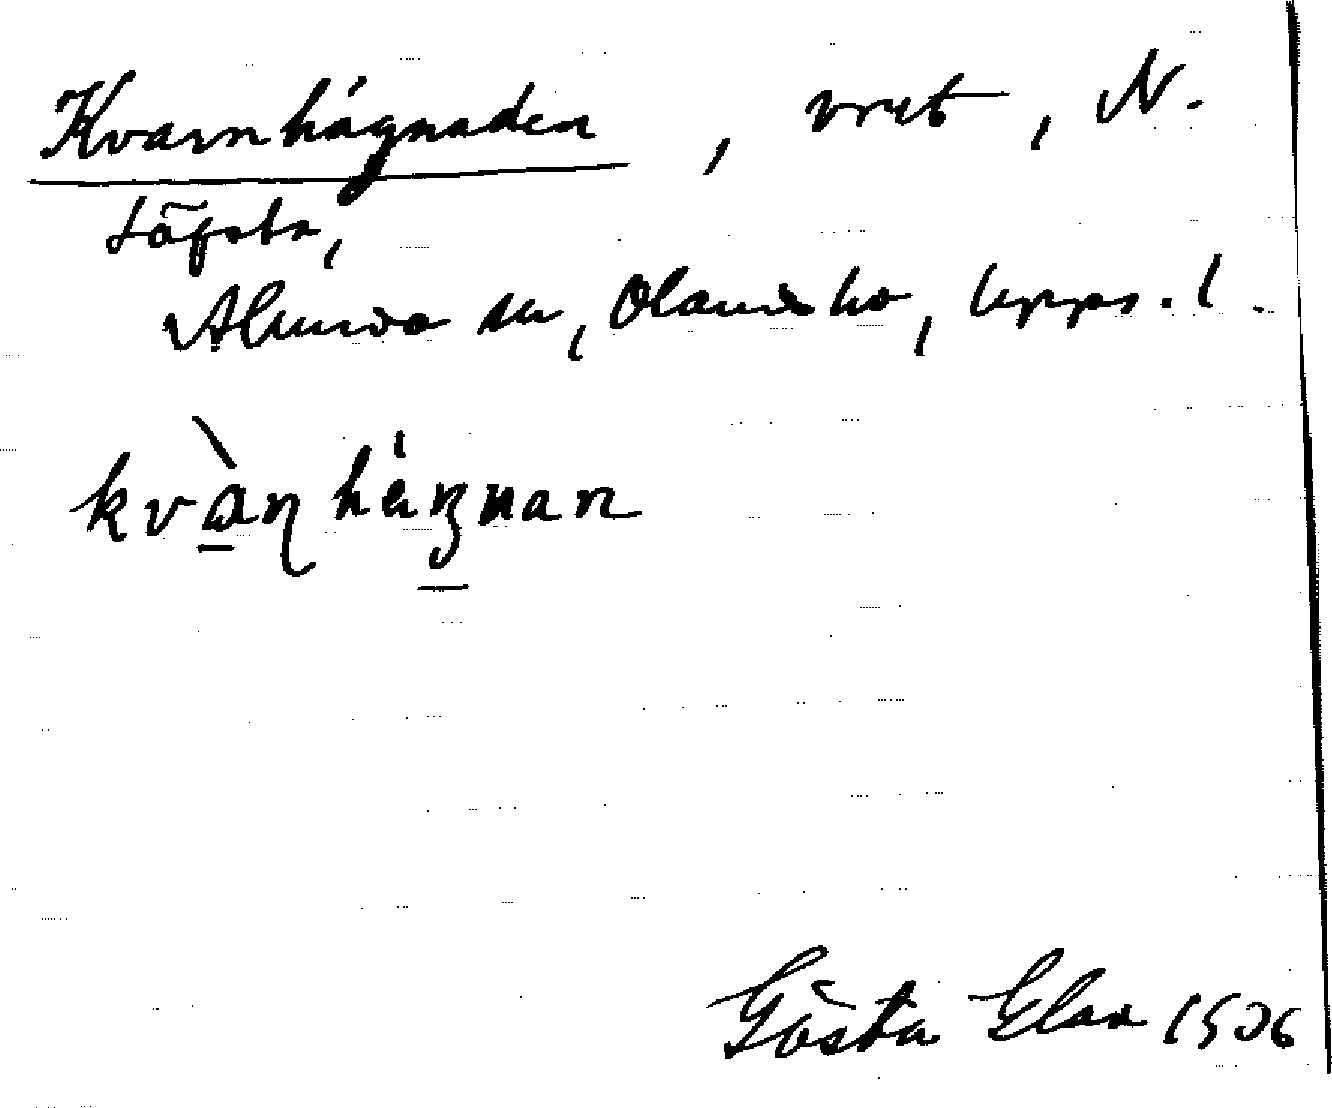 Kvarnhägnaden, vret, N.
Löfsta,
Alunda sn, Olands hd, Upps. l.
kvàṉhägnan
Gösta Elax 1906